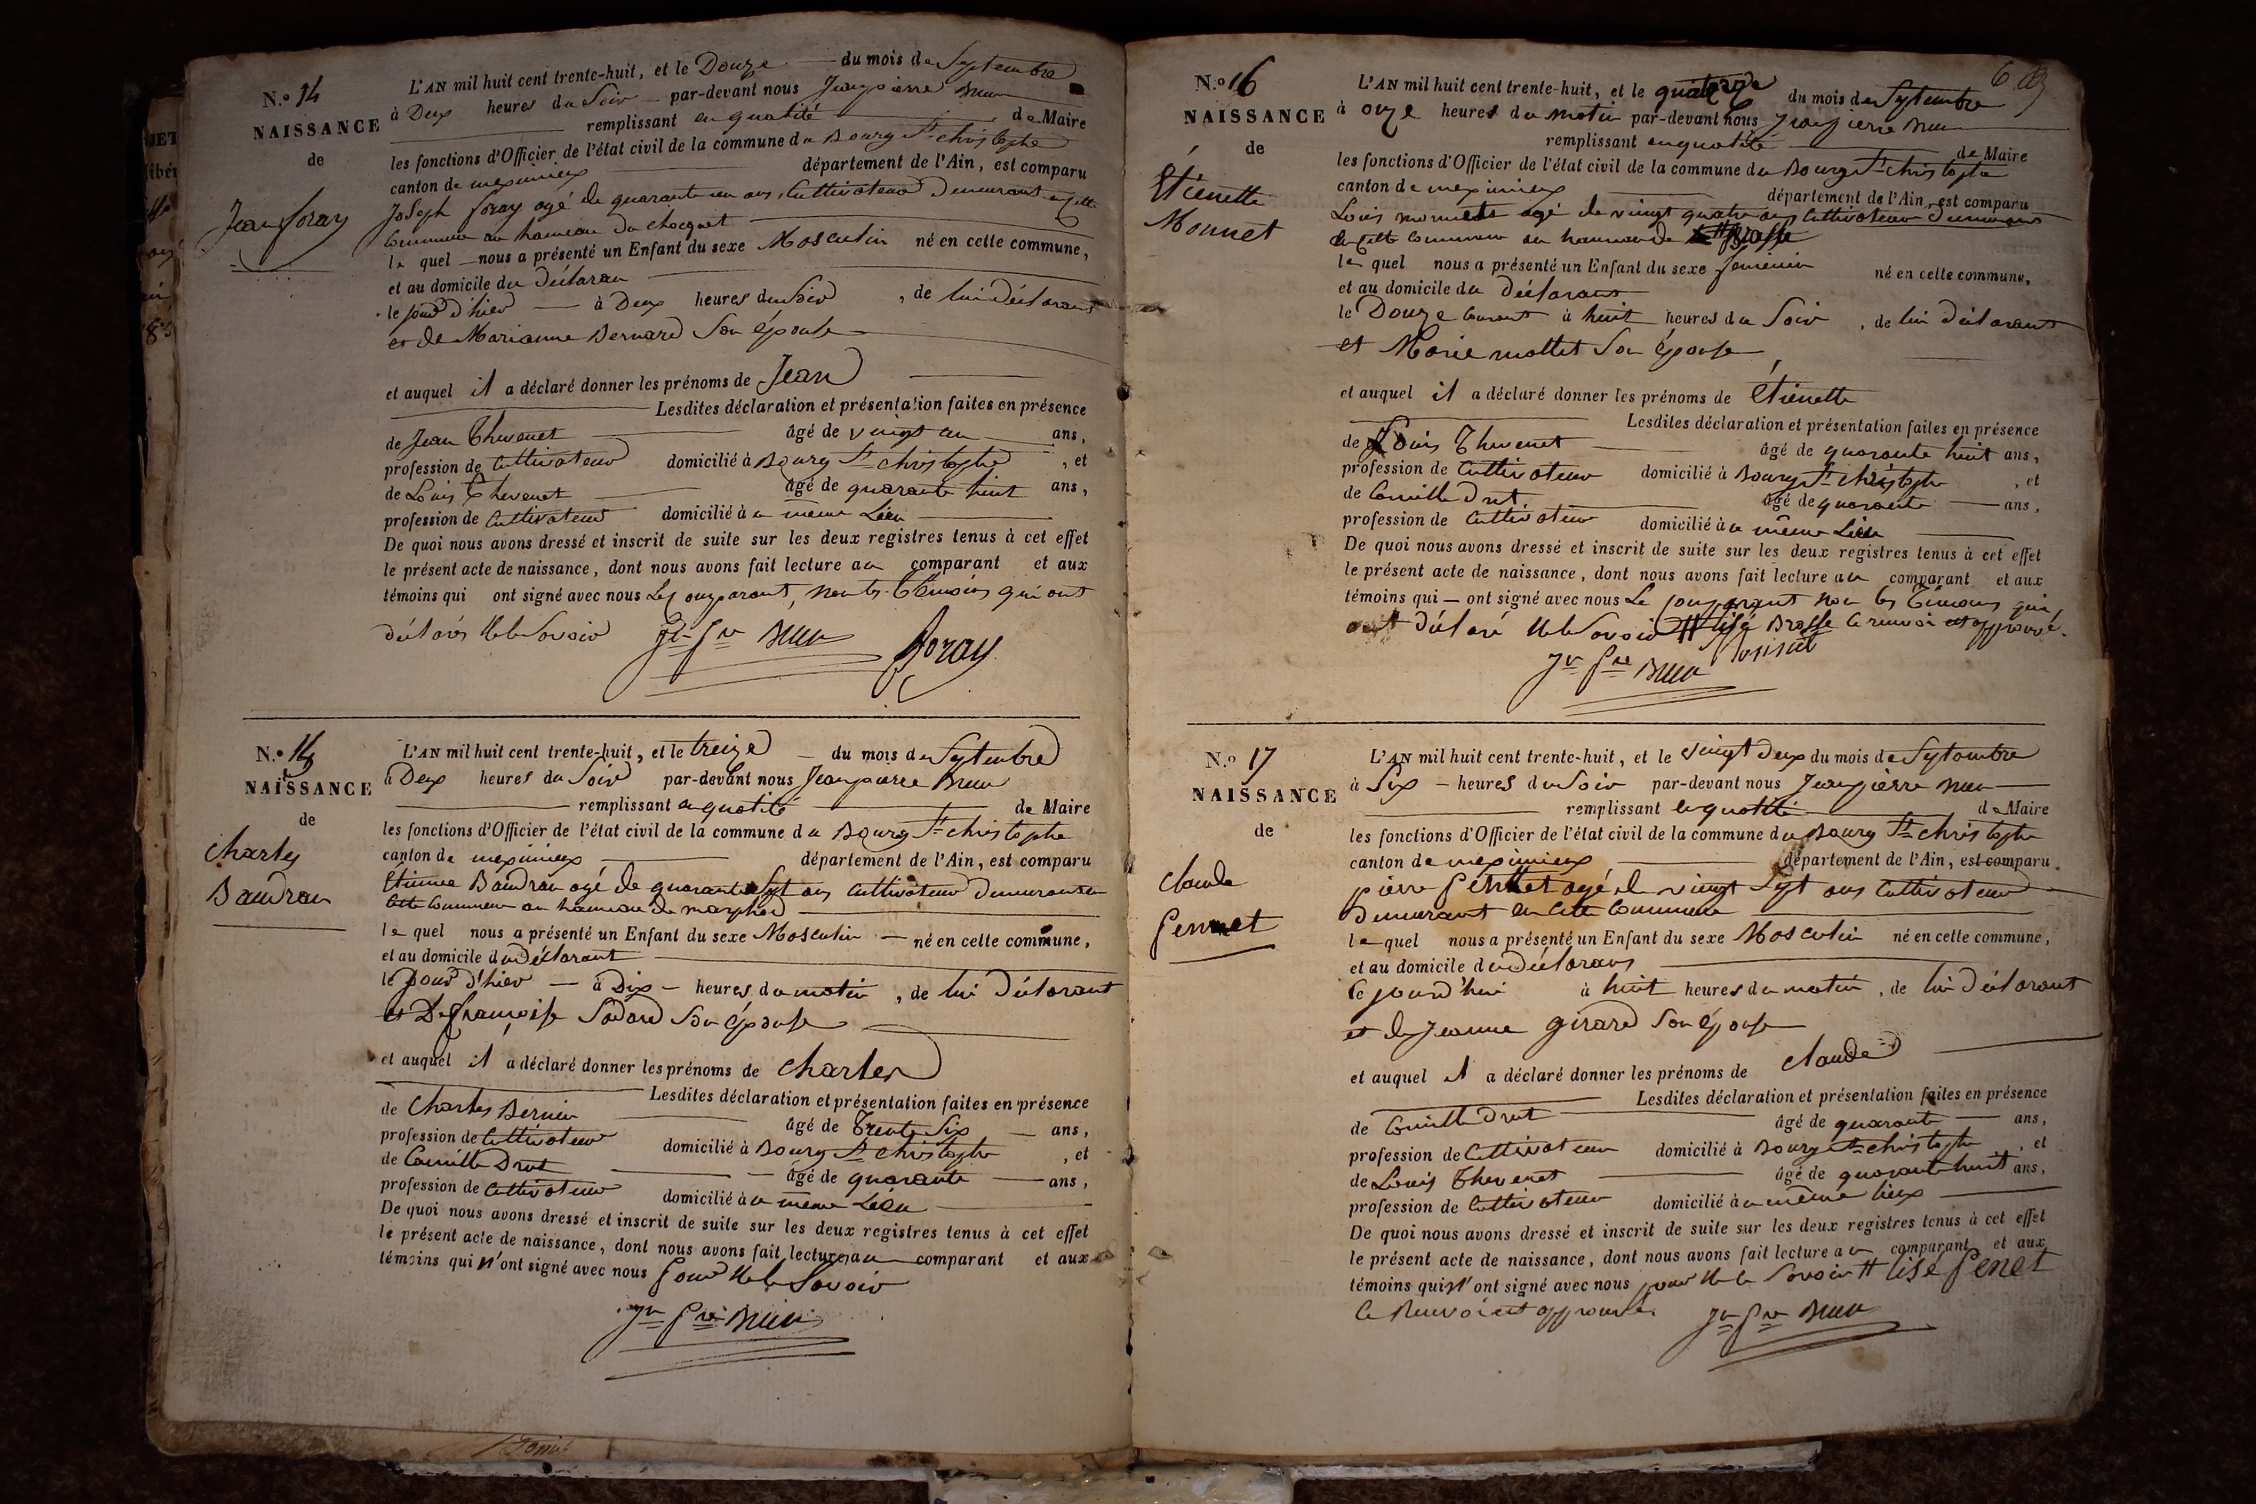 N.º 14
NAISSANCE
de
Jean Foray
L'AN mil huit cent trente-huit, et le Douze du mois de Septembre
à Deux heures du Soir par-devant nous Jeanpierre Brun
remplissant en qualité de Maire
les fonctions d'Officier de l'état civil de la commune du Bourg St christophe
canton de meximieux département de l'Ain, est comparu
Joseph foray agé de quarante un ans, Cultivateur Demeurant en cette
Commune au hameau du chocquet
le quel nous a présenté un Enfant du sexe Masculin né en cette commune,
et au domicile du Déclarant
le jour d'hier à Deux heures du Soir, de lui Déclarant
et de Marianne Bernard Son épouse
et auquel il a déclaré donner les prénoms de Jean
Lesdites déclaration et présentation faites en présence
de Jean Thevenet âgé de vingt un ans,
profession de Cultivateur domicilié à Bourg St christophe, et
de Louis Thevenet âgé de quarante huit ans,
profession de Cultivateur domicilié au même Lieu
De quoi nous avons dressé et inscrit de suite sur les deux registres tenus à cet effet
le présent acte de naissance, dont nous avons fait lecture au comparant et aux
témoins qui ont signé avec nous Le Comparant, non les Témoins qui ont
déclarés Ne le Savoir
Jn Pre Brun foray
N.º 15
NAISSANCE
de
Charles
Baudran
L'AN mil huit cent trente-huit, et le treize du mois de Septembre
à Deux heures du Soir par-devant nous Jeanpierre Brun
remplissant en qualité de Maire
les fonctions d'Officier de l'état civil de la commune du Bourg St christophe
canton de meximieux département de l'Ain, est comparu
Etienne Baudran agé de quarante Sept ans Cultivateur Demeurant en
Cette Commune au hameau de marphod
le quel nous a présenté un Enfant du sexe Masculin né en cette commune,
et au domicile du Déclarant
le jour d'hier à Dix heures du matin, de lui Déclarant
et De françoise Sodard Son épouse
et auquel il a déclaré donner les prénoms de Charles
Lesdites déclaration et présentation faites en présence
de Charles Bernin âgé de Trente Six ans,
profession de Cultivateur domicilié à Bourg St christophe, et
de Camille Drut âgé de quarante ans,
profession de Cultivateur domicilié au même Lieu
De quoi nous avons dressé et inscrit de suite sur les deux registres tenus à cet effet
le présent acte de naissance, dont nous avons fait lecture au comparant et aux
témoins qui n'ont signé avec nous pour Ne le Savoir
Jn Pre Brun
6
N.º 16
NAISSANCE
de
Étienette
Monnet
L'AN mil huit cent trente-huit, et le quatorze du mois de Septembre
à onze heures du matin par-devant nous Jeanpierre Brun
remplissant en qualité de Maire
les fonctions d'Officier de l'état civil de la commune du Bourg St christophe
canton de meximieux département de l'Ain, est comparu
Louis monnet agé de vingt quatre ans Cultivateur Demeurant
en cette Commune au hameau de Brosse
le quel nous a présenté un Enfant du sexe feminin né en cette commune,
et au domicile du Déclarant
le Douze Courant à huit heures du Soir, de lui Déclarant
et Marie mollet Son épouse
et auquel il a déclaré donner les prénoms de Étienette
Lesdites déclaration et présentation faites en présence
de Louis Thevenet âgé de quarante huit ans,
profession de Cultivateur domicilié à Bourg St christophe, et
de Camille Drut âgé de quarante ans,
profession de Cultivateur domicilié au même Lieu
De quoi nous avons dressé et inscrit de suite sur les deux registres tenus à cet effet
le présent acte de naissance, dont nous avons fait lecture au comparant et aux
témoins qui ont signé avec nous Le Comparant non les Témoins qui
ont déclaré Ne le Savoir # lisé Brosse le renvoi est approuvé.
Jn Pre Brun
N.º 17
NAISSANCE
de
Claude
Pernet
L'AN mil huit cent trente-huit, et le vingt Deux du mois de Septembre
à Six heures du Soir par-devant nous Jeanpierre Brun
remplissant en qualité de Maire
les fonctions d'Officier de l'état civil de la commune du Bourg St christophe
canton de meximieux département de l'Ain, est comparu
pierre agé de vingt Sept ans Cultivateur
Demeurant en Cette Commune
le quel nous a présenté un Enfant du sexe Masculin né en cette commune,
et au domicile du Déclarant
Ce jourd'hui à huit heures du matin, de lui Déclarant
et de Jeanne girard Son épouse
et auquel il a déclaré donner les prénoms de Claude
Lesdites déclaration et présentation faites en présence
de Camille Drut âgé de quarante ans,
profession de Cultivateur domicilié à Bourg St christophe, et
de Louis Thevenet âgé de quarante huit ans,
profession de Cultivateur domicilié au même lieux
De quoi nous avons dressé et inscrit de suite sur les deux registres tenus à cet effet
le présent acte de naissance, dont nous avons fait lecture au comparant et aux
témoins qui n'ont signé avec nous pour Ne le Savoir # lisé Penet
le Renvoi est approuvé.
Jn Pre Brun